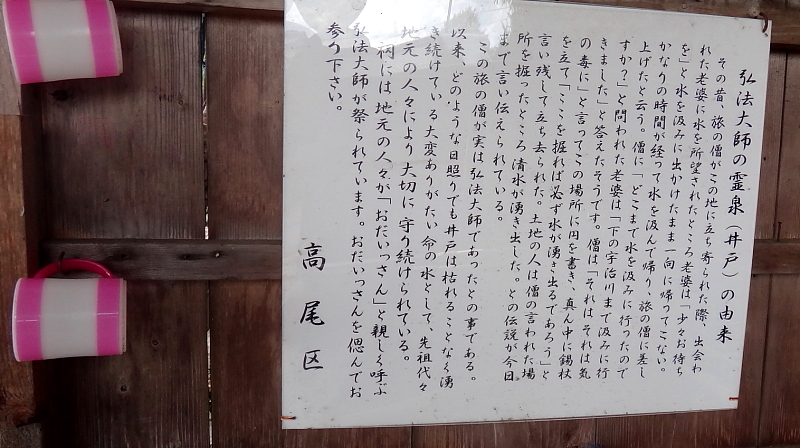 弘法大師の霊泉（井戸）の由来
その昔、旅の僧がこの地に立ち寄られた際、出会わ
れた老婆に水を所望されたところ老婆は「少々お待ち
を」と水を汲みに出かけたまま一向に帰ってこない。
かなりの時間が経って水を汲んで帰り、旅の僧に差し
上げたと云う。僧に「どこまで水を汲みに行ったので
すか？」と問われた老婆は「下の宇治川まで汲みに行
きました」と答えたそうです。僧は「それはそれは気
の毒に」と言ってこの場所に円を書き、真ん中に錫杖
を立て「ここを掘れば必ず水が湧き出るであろう」と
言い残して立ち去られた。土地の人は僧の言われた場
所を掘ったところ清水が湧き出した。との伝説が今日
まで言い伝えられている。
この旅の僧が実は弘法大師であったとの事である。
以来、どのような日照りでも井戸は枯れることなく湧
き続けている大変ありがたい命の水として、先祖代々
地元の人々により大切に守り続けられている。
祠には地元の人々が「おだいっさん」と親しく呼ぶ
弘法大師が祭られています。おだいっさんを偲んでお
参り下さい。
高尾区